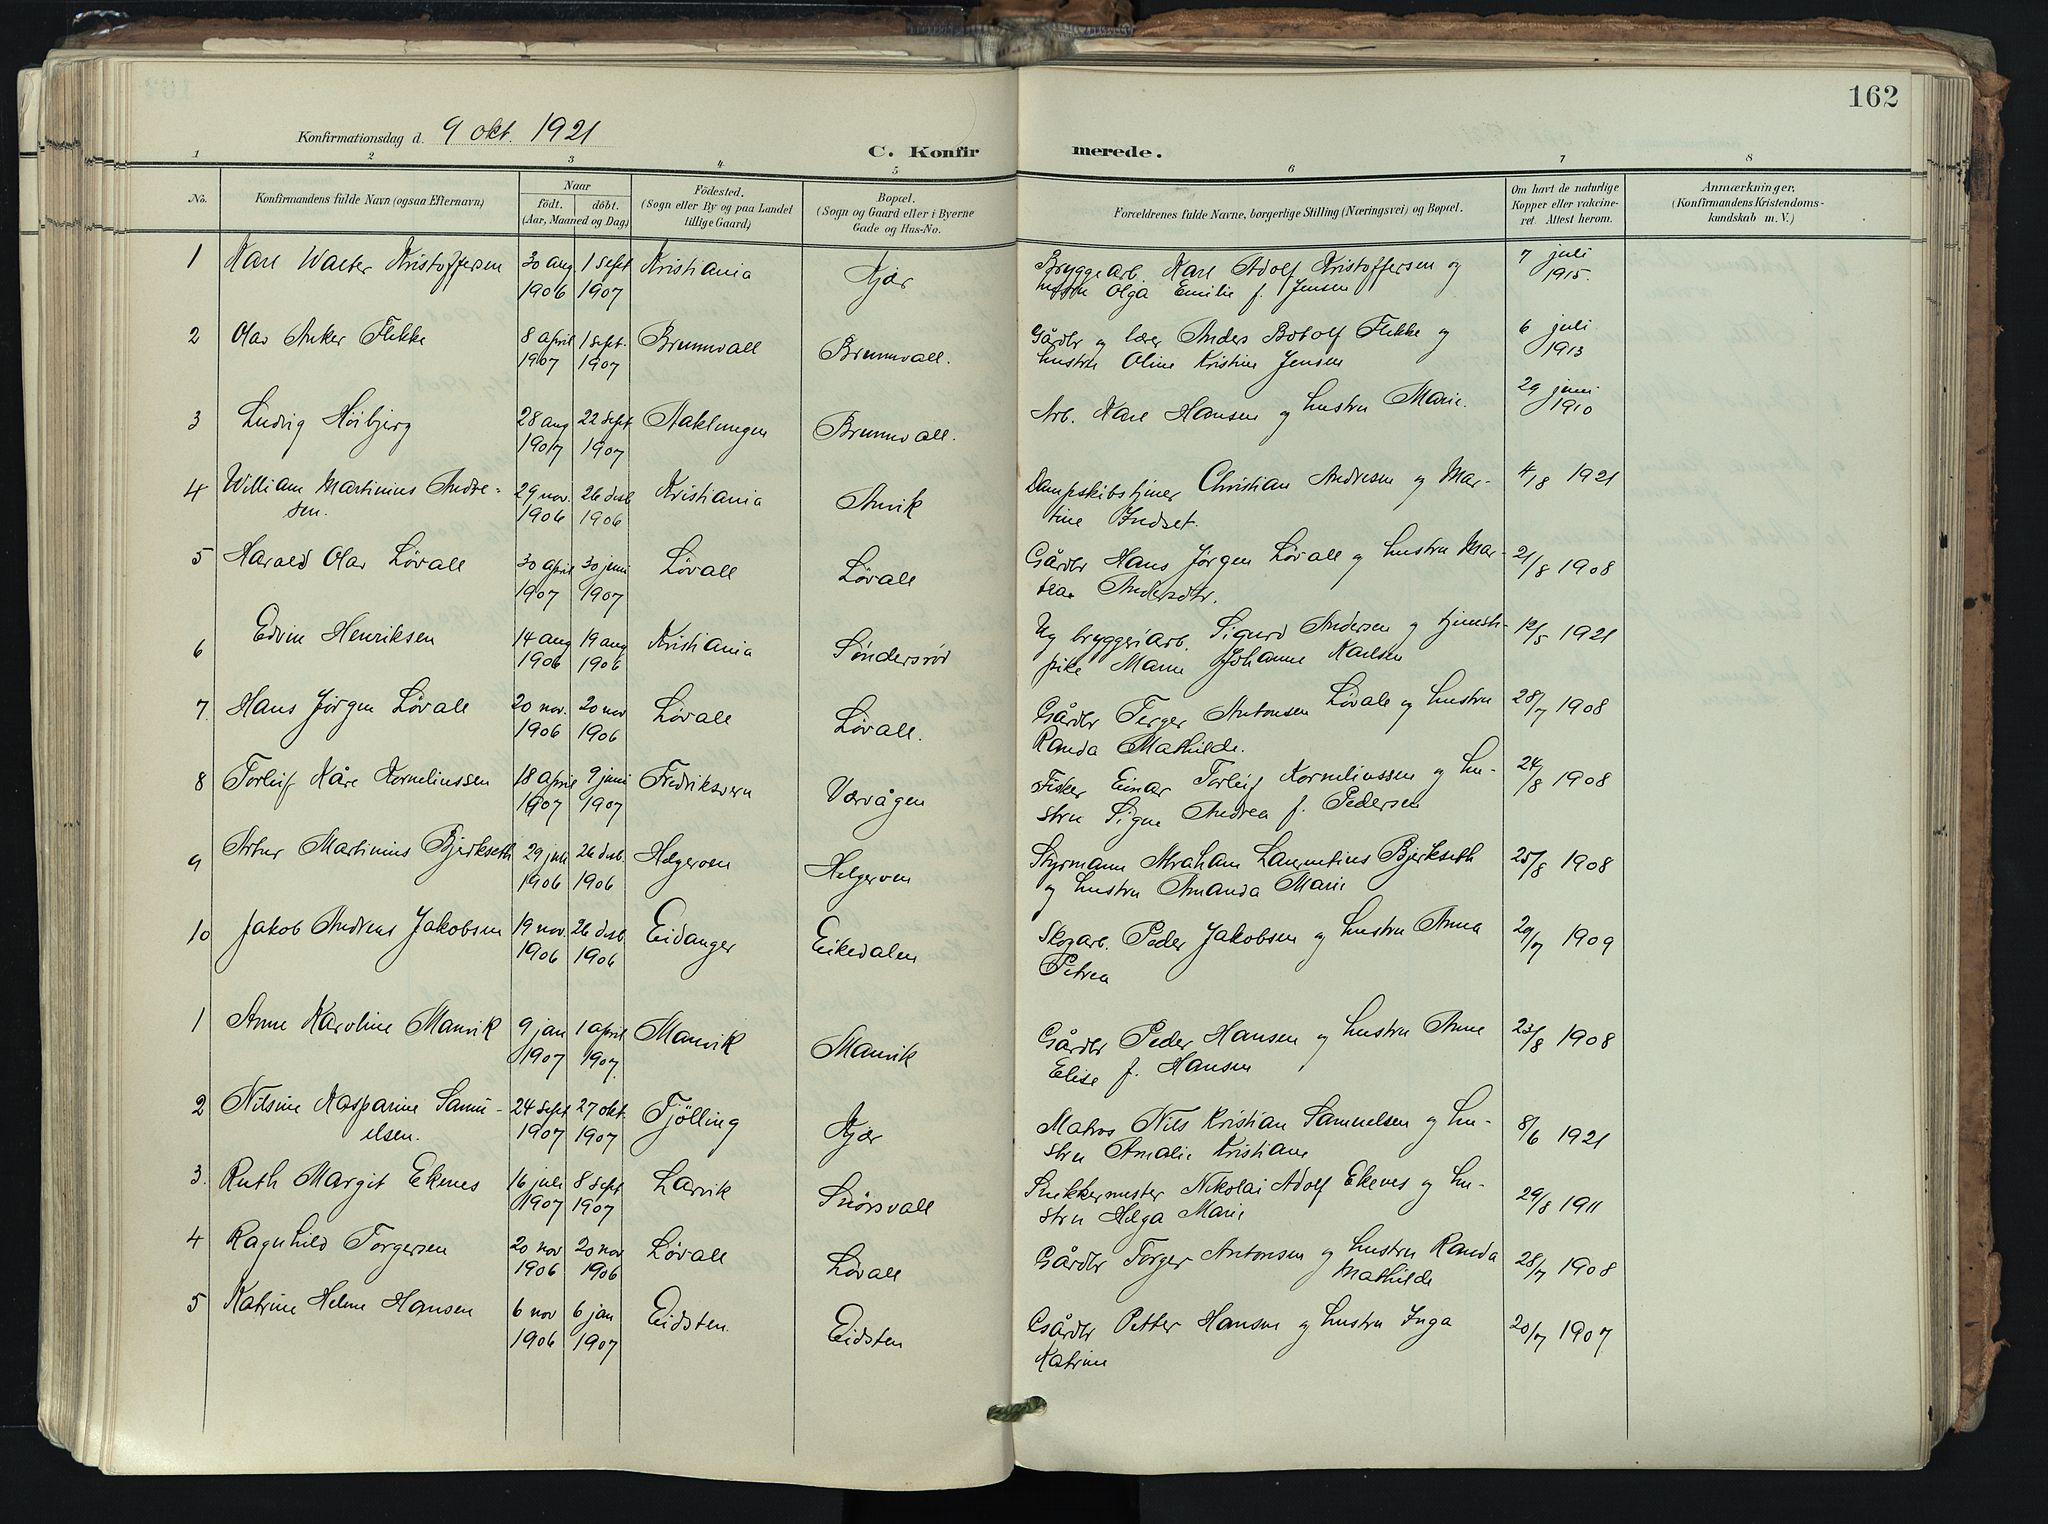 162
Konfirmationsdag d. 9 okt. 1921
C. Konfirmerede.
1 2 3 4 5 6 7 8
No.
Konfirmandens fulde Navn (ogsaa Efternavn)
Naar
födt. döbt.
(Aar, Maaned og Dag)
Födested.
(Sogn eller By og paa Landet
tillige Gaard)
Bopæl.
(Sogn og Gaard eller i Byerne
Gade og Hus-No.
Forældrenes fulde Navne, borgerlige Stilling (Næringsvei) og Bopæl.
Om havt de naturlige
Kopper eller vakcine-
ret. Attest herom.
Anmærkninger.
(Konfirmandens Kristendoms-
kundskab m. V.)
1 Karl Walter Kristoffersen 30 aug 1906 1 sept 1907 Kristiania Kjær Bryggearb. Karl Adolf Kristoffersen og
Olga Emilie f. Jensen 7 juli 1915.
2 Olav Anker Flikke 8 april 1907 1 sept. 1907 Brunnvall Brunnvall. Gårdbr og lærer Anders Botolf Flikke og
hustru Oline Kristine Jensen 6 juli 1913
3 Ludvig Höibjerg 28 aug 1907 22 sept 1907 Aaklungen Brunnvall. Arb. Karl Hansen og hustru Marie. 29 juni 1910
4 William Martinius Andre-
sen. 29 nov. 1906 26 desb 1906 Kristiania Anvik Dampskibstjener Christian Andresen og Mar-
tine Indset. 4/8 1921
5 Harald Olav Løvall 30 april 1907 30 juni 1907 Løvall Løvall Gårdbr Hans Jørgen Løvall og hustru Mar-
tea Andersdtr. 21/8 1908
6 Edvin Henriksen 14 aug 1906 19 aug 1906 Kristiania Søndersrød Ug bryggeriarb. Sigurd Andersen og tjeneste-
pike Marie Johanne Karlsen 12/5 1921
7. Hans Jørgen Løvall 20 nov. 1906 20 nov 1906 Løvall Løvall. Gårdbr Torger Antonsen Løvall og hustru
Randa Mathilde. 28/7 1908
8 Torleif Kåre Korneliussen 18 april 1907 9 juni 1907 Fredriksvern Værvågen Fisker Einar Torleif Korneliussen og hu-
stru Signe Andrea f. Pedersen 24/8 1908
9 Artur Martinius Bjerkseth 29 juli 1906 26 desb. 1906 Helgeroen Helgeroen Styrmann Abraham Laurentius Bjerkseth
og hustru Amanda Marie 25/8 1908
10 Jakob Andreas Jakobsen 19 nov. 1906 26 desb. 1906 Eidanger Eikedalen Skogarb. Peder Jakobsen og hustru Anna
Petrea 29/7 1909
1 Anne Karoline Manvik 9 jan 1907 1 april 1907. Manvik Manvik Gårdbr Peder Hansen og hustru Anne
Elise f. Hansen 23/8 1908
2 Nilsine Kasparine Samu-
elsen. 24 sept 1907 27 okt. 1907 Tjölling Kjær Matros Nils Kristian Samuelsen og hu-
stru Amalie Kristiane 8/6 1921
3. Ruth Margit Ekenes 16 juli 1907 8 sept 1907 Larvik Snørsvall Snikkermester Nikolai Adolf Ekenes og hu-
stru Helga Marie 29/8 1911
4 Ragnhild Torgersen 20 nov 1906 20 nov 1906 Løvall Løvall Gårdbr Torger Antonsen og hustru Randa
Mathilde 28/7 1908
5 Katrine Helene Hansen 6 nov 1906 6 jan 1907 Eidsten Eidsten Gårdbr Petter Hansen og hustru Inga
Katrine 20/7 1907